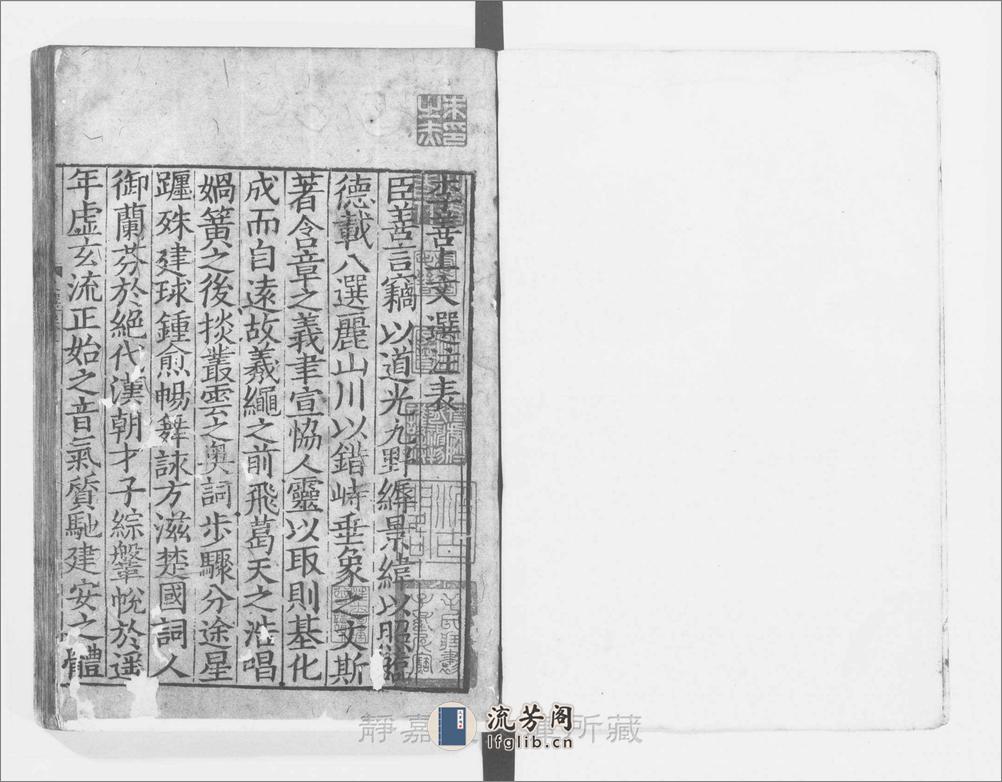 李善上文選注表
臣善言竊以道光九野縟景緯以照臨
德載八選麗山川以錯峙垂象之文斯
著含章之義聿宣恊人靈以取則基化
成而自遠故羲繩之前飛葛天之浩唱
媧簧之後掞叢雲之奧詞步驟分途星
躔殊建球鍾愈暢舞詠方滋楚國詞人
御蘭芬於絶代漢朝才子綜鞶帨於遥
年虛玄流正始之音氣質馳建安之體
靜嘉 所藏
流芳阁
lfglib.cn